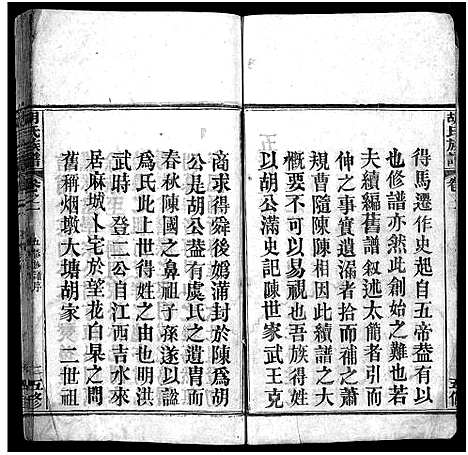 得馬遷作史起自五帝葢有以
也修譜亦然此創始之難也若
夫續編舊譜叙述太簡者引而
伸之事實遺溺者拾而補之蕭
規曹隨陳陳相因此類是也則
又未可以易視也吾族得姓
以胡公滿史記陳世家武王克
商求得舜後媯蒲封於陳爲胡
公是胡公葢有虞氏之遺胄而
春秋陳國之鼻祖子孫遂以諡
爲氏此上世得姓之由也明洪
武時 登二公自江西吉水來
居麻城卜宅於望花白杲之間
舊稱烟墩大塘胡家 三世祖
胡氏族譜
卷之一
五修
胡氏族譜
卷之一
五修